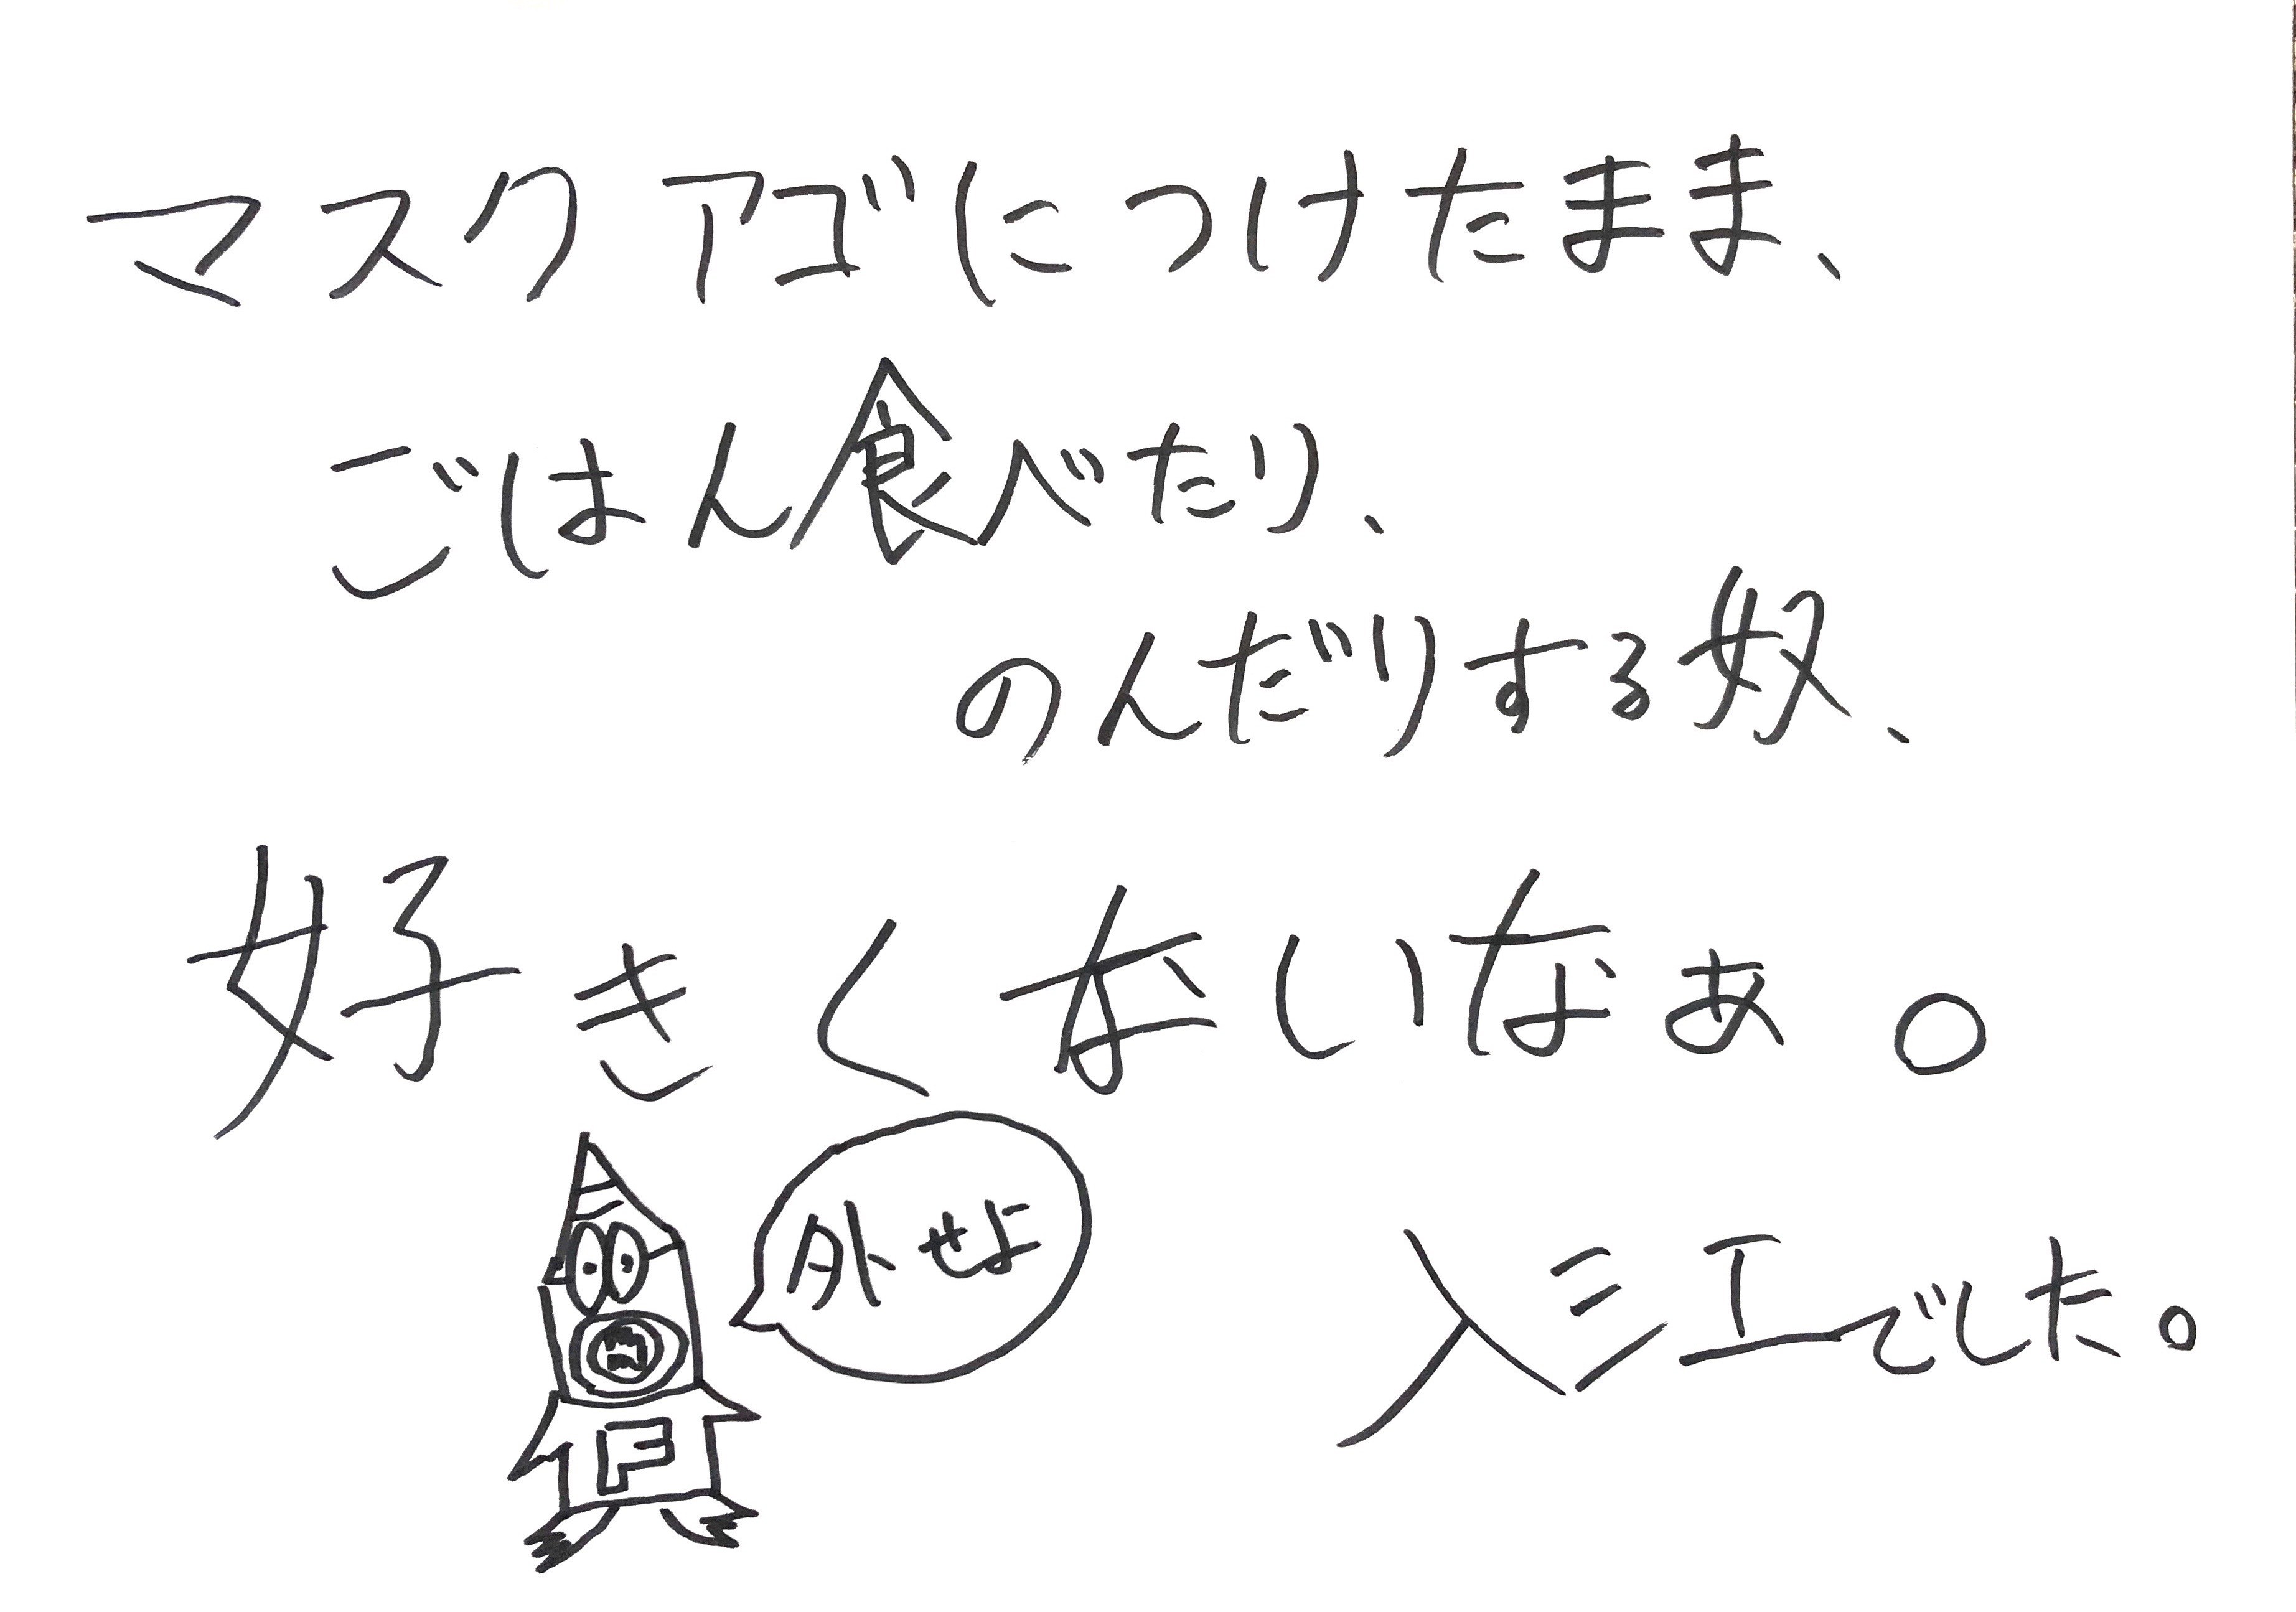 マスクアゴにつけたまま、
ごはん食べたり、
のんだりする奴、
好きくないなぁ。
外せよ
入ミエでした。
P